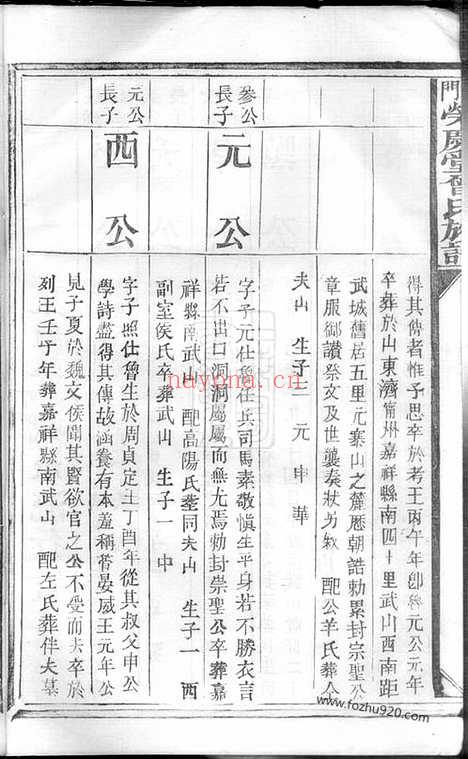 門榮慶堂曾氏族譜
得其傳者惟予思卒於考王丙午年卽魯元公元年
卒葬於山東濟甯州嘉祥縣南四十里武山西南距
武城舊居五里元寨山之麓歷朝誥勅累封宗聖公
章服御讃祭文及世襲奏狀另敘 配公羊氏葬合
夫山 生子三 元 申 華
參公長子
元公
字子元仕魯任兵司馬素敬愼生平身若不勝衣言
若不出口洞洞屬屬向無尤焉勅封崇聖公卒葬嘉
祥縣南武山 配高陽氏塟同夫山 生子一 西
副室侯氏卒葬武山 生子一 中
元公長子
西公
字子照仕魯生於周貞定王丁酉年從其叔父申公
學詩盡得其傳故涵養有本羞稱管晏威王元年公
見子夏於魏文侯聞其賢欲官之公不受而去卒於
列王壬子年葬嘉祥縣南武山 配左氏葬伴夫墓
nayona.cn
www.fozhu920.com